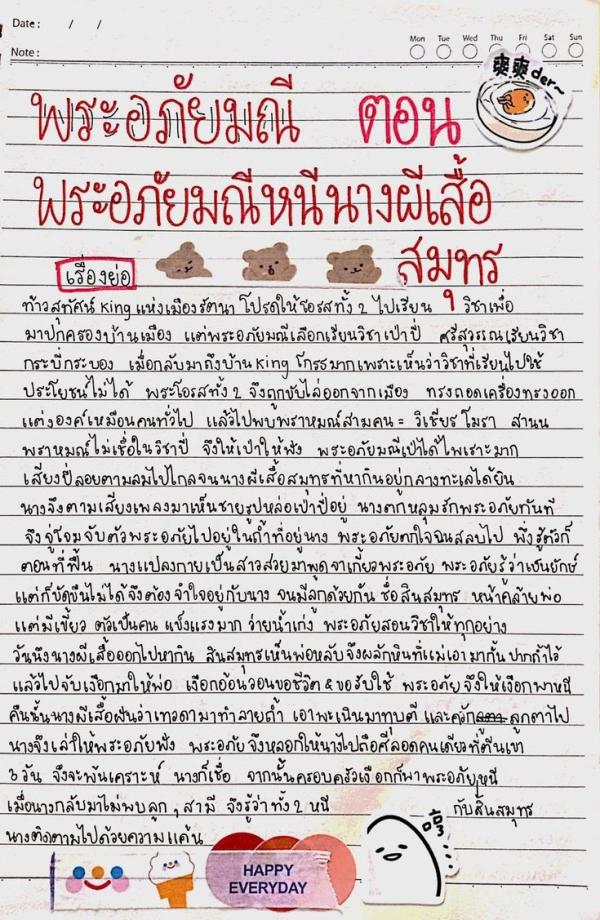 Date : / /
Mon Tue Wed Thu Fri Sat Sun
Note :
爽爽der~
พระอภัยมณี ตอน
พระอภัยมณีหนีนางผีเสื้อ
สมุทร
เรื่องย่อ
ท้าวสุทัศน์ King แห่งเมืองรัตนา โปรดให้โอรสทั้ง 2 ไปเรียน วิชาเพื่อ
มาปกครองบ้านเมือง แต่พระอภัยมณีเลือกเรียนวิชาเป่าปี่ ศรีสุวรรณเรียนวิชา
กระบี่กระบอง เมื่อกลับมาถึงบ้าน King โกรธมากเพราะเห็นว่าวิชาที่เรียนไปใช้
ประโยชน์ไม่ได้ พระโอรสทั้ง 2 จึงถูกขับไล่ออกจากเมือง ทรงถอดเครื่องทรงออก
แต่งองค์เหมือนคนทั่วไป แล้วไปพบพราหมณ์สามคน = วิเชียร โมรา สานน
พราหมณ์ไม่เชื่อในวิชาปี่ จึงให้เป่าให้ฟัง พระอภัยมณีเป่าได้ไพเราะมาก
เสียงปี่ลอยตามลมไปไกลจนนางผีเสื้อสมุทรที่หากินอยู่กลางทะเลได้ยิน
นางจึงตามเสียงเพลงมาเห็นชายรูปหล่อเป่าปี่อยู่ นางตกหลุมรักพระอภัยทันที
จึงจู่โจมจับตัวพระอภัยไปอยู่ในถ้ำที่อยู่นาง พระอภัยตกใจจนสลบไป พึ่งรู้ตัวก็
ตอนที่ฟื้น นางแปลงกายเป็นสาวสวยมาพูดจาเกี้ยวพระอภัย พระอภัยรู้ว่าเป็นยักษ์
แต่ก็ขัดขืนไม่ได้จึงต้องจำใจอยู่กับนาง จนมีลูกด้วยกัน ชื่อสินสมุทร หน้าคล้ายพ่อ
แต่มีเขี้ยว ตัวเป็นคน แข็งแรงมาก ว่ายน้ำเก่ง พระอภัยสอนวิชาให้ทุกอย่าง
วันนึงนางผีเสื้อออกไปหากิน สินสมุทรเห็นพ่อหลับจึงผลักหินที่แม่เอามากั้นปากถ้ำไว้
แล้วไปจับเงือกมาให้พ่อ เงือกอ้อนวอนขอชีวิต & ขอรับใช้ พระอภัยจึงให้เงือกพาหนี
คืนนั้นนางผีเสื้อฝันว่าเทวดามาทำลายถ้ำ เอาพะเนินมาทุบตี และควัก ลูกตาไป
นางจึงเล่าให้พระอภัยฟัง พระอภัยจึงหลอกให้นางไปถือศีลอดคนเดียวที่ตีนเขา
3 วัน จึงจะพ้นเคราะห์ นางก็เชื่อ จากนั้นครอบครัวเงือกก็พาพระอภัยหนี
เมื่อนางกลับมาไม่พบลูก , สามี จึงรู้ว่าทั้ง 2 หนี กับสินสมุทร
นางติดตามไปด้วยความแค้น
HAPPY
EVERYDAY